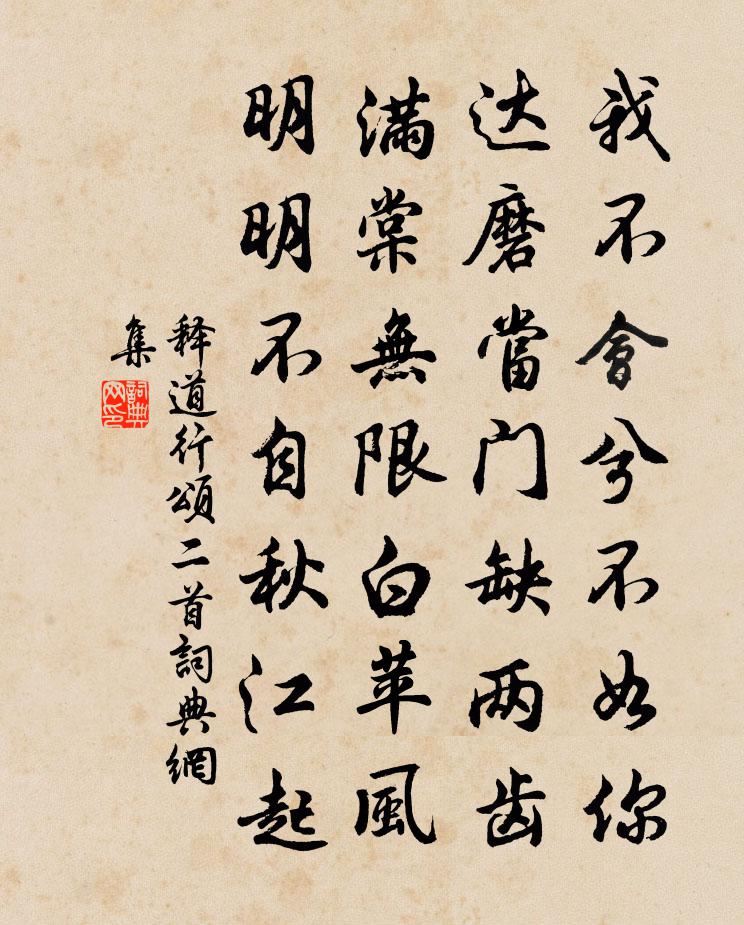 我不會兮不如你
达磨當门缺两齿
滿棠無限白苹風
明明不自秋江起
释道行頌二首詞典網
集
詞典
网印